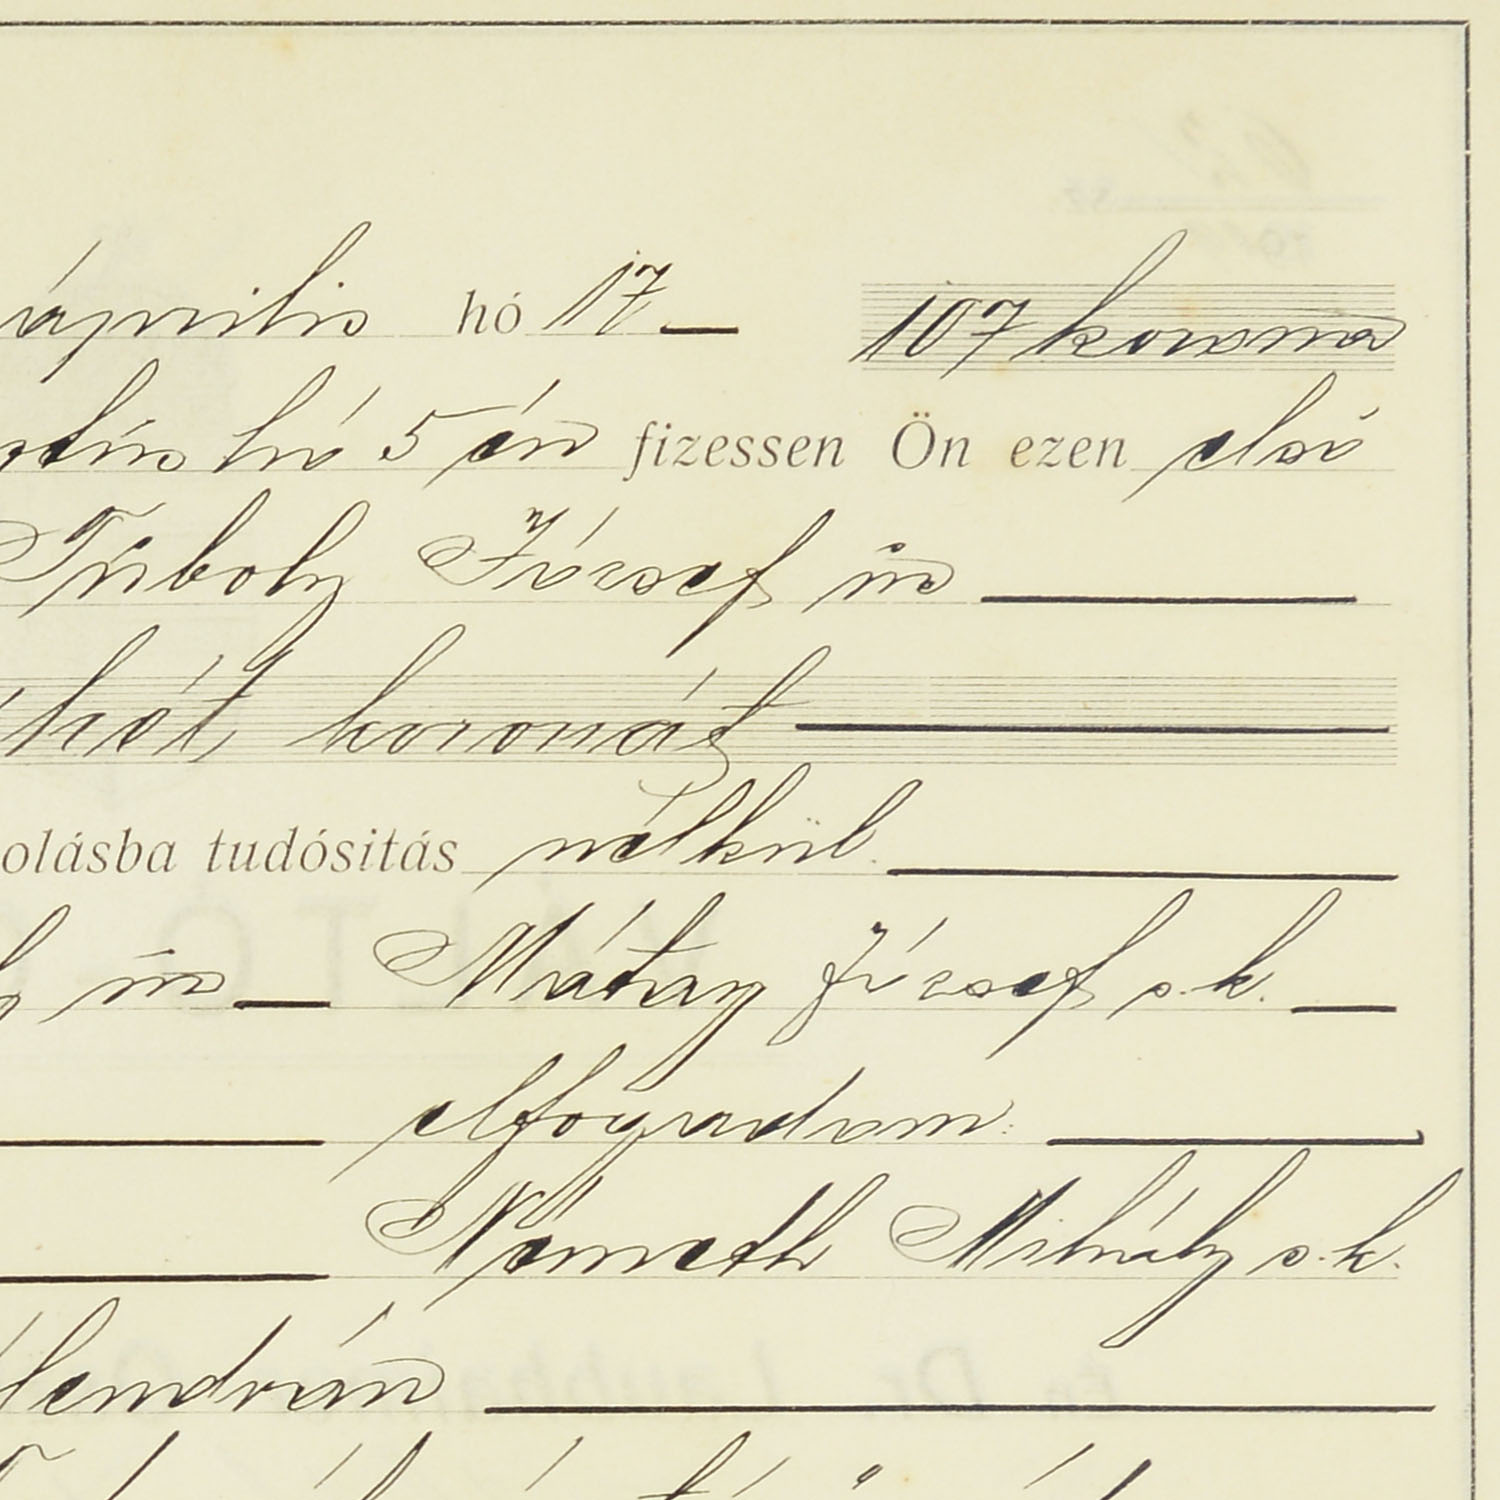 április hó 17 107 korona
hó 5 én fizessen Ön ezen első
Triboly József úr
hét koronát
olásba tudósitás nélkül.
úr Mátay József s. k.
elfogadom:
Németh Mihály s. k.